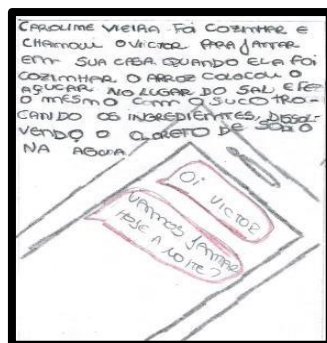 CAROLINE VIEIRA FOI COZINHAR E
CHAMOU O VICTOR PARA JANTAR
EM SUA CASA. QUANDO ELA FOI
COZINHAR O ARROZ COLOCOU O
AÇUCAR NO LUGAR DO SAL E FEZ
O MESMO COM O SUCO TRO-
CANDO OS INGREDIENTES, DISSOL-
VENDO O CLORETO DE SÓDIO
NA AGUA.
OI VICTOR
VAMOS JANTAR
HOJE A NOITE?